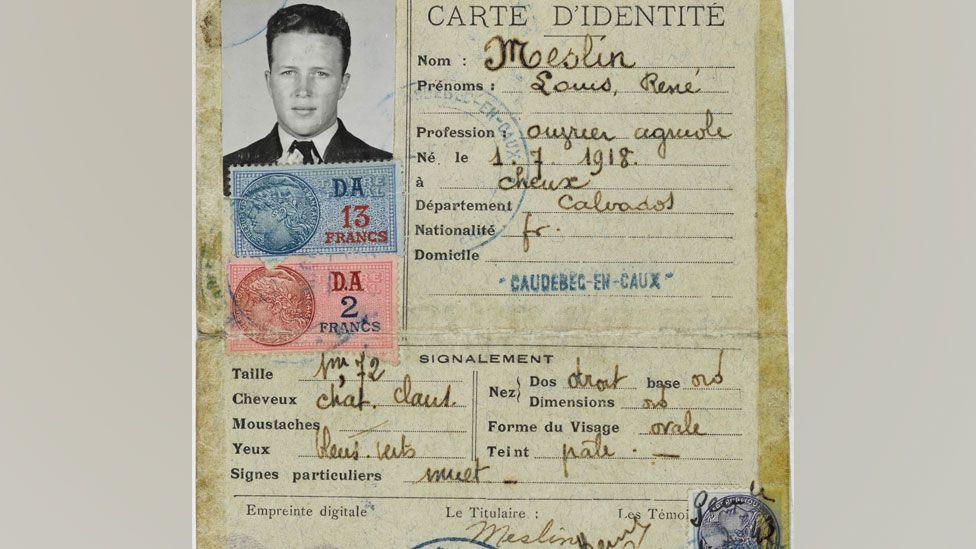 CARTE D'IDENTITÉ
Nom : Meslin
Prénoms : Louis, René
Profession : ouvrier agricole
Né le 1.7.1918.
à cheux
Département Calvados
Nationalité fr.
Domicile
"CAUDEBEC-EN-CAUX"
CAUDEBEC-EN-CAUX
D.A
13
FRANCS
D.A
2
FRANCS
SIGNALEMENT
Taille 1m,72
Cheveux chat. clairs.
Moustaches
Yeux bleus-verts
Signes particuliers muet
Nez Dos droit base
Dimensions
Forme du Visage ovale
Teint pâle
Empreinte digitale Le Titulaire : Les Témoi
Meslin